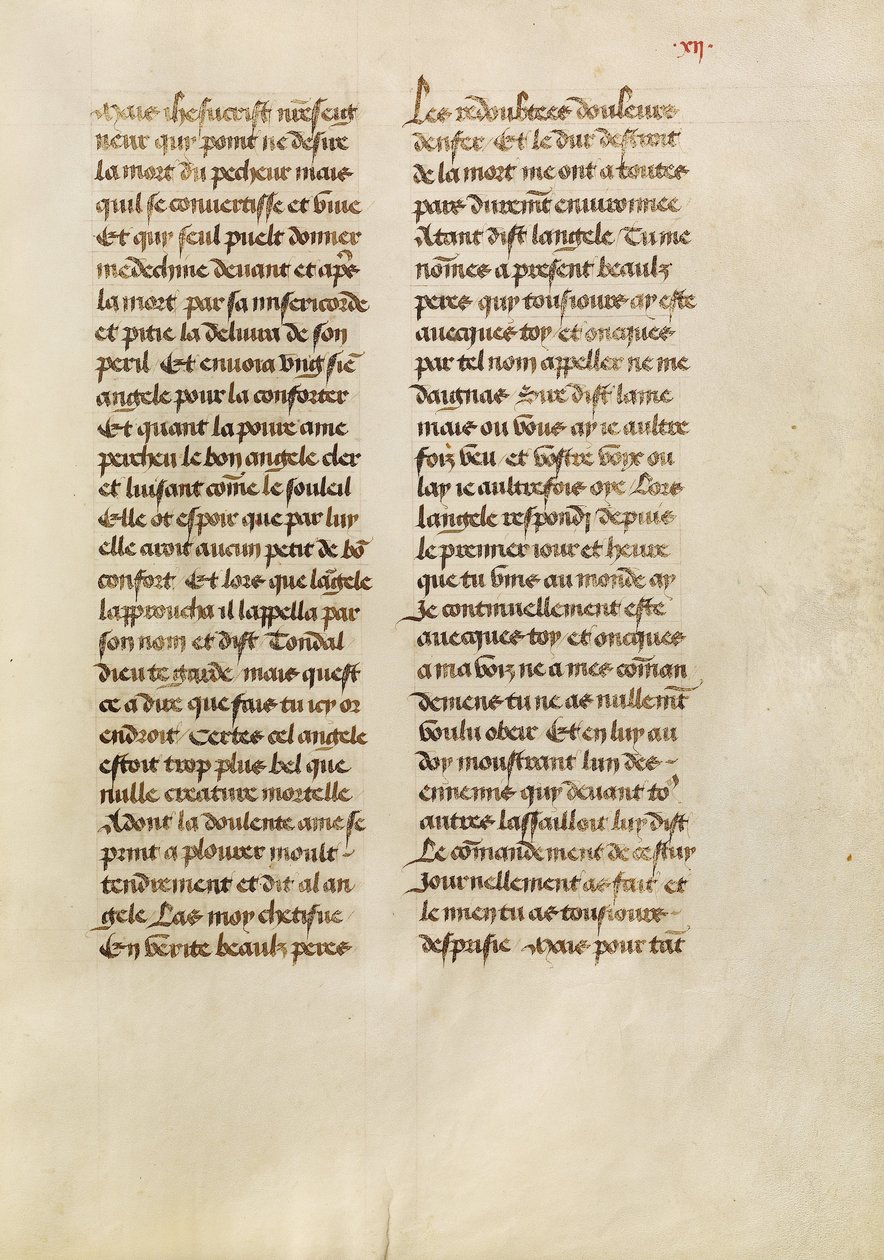 ·xij·
Mais ihesucrist nr̄e seig
neur quy point ne desire
la mort du pecheur mais
quil se conuertisse et viue
Et quy seul puelt donner
medechine deuant et ap̄s
la mort par sa misericorde
et pitie la deliura de son
peril / Et enuoia vng siē
angele pour la conforter
Et quant la poure ame
percheu le bon angele cler
et luisant com̄e le souleil
Elle ot espoir que par luy
elle aroit aucun petit de bō
confort Et lors que lāgele
lapproucha il lappella par
son nom et dist Tondal
dieu te garde / mais quest
ce a dire que fais tu icy or
endroit / Certes cel angele
estoit trop plus bel que
nulle creature mortelle
Adont la doulente ame se
print a plourer moult -
tendrement et dit al an
gele / Las moy chetifue /
En verite beaulz peres
Les redoubtees douleurs
denfer / Et le dur destroit
de la mort me ont a toutes
pars durem̄t enuironnee /
Atant dist langele / Tu me
nōmes a present beaulz
peres quy tousiours ay este
auecques toy / et oncques
par tel nom appeller ne me
daignas Sire dist lame
mais ou vous ay ie aultre
foiz veu / et vostre voix ou
lay ie aultrefois oye / Lors
langele respondj depuis
le premier iour et heure
que tu vins au monde ay
Je continuellement este
auecques toy et oncques
a ma voiz ne a mes cōman
demens tu ne as nullem̄t
voulu obeir / Et en luy au
doy moustrant lun des -
ennemis quy deuant to9
autres lassailloit luy dist
Le cōmandement de cestuy
Journellement as fait et
le mien tu as tousiours -
desprisie Mais pour tāt